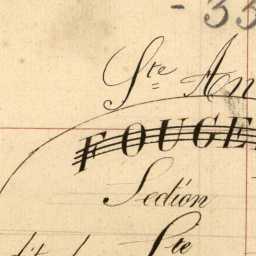 - 33
Ste An
FOUGE
Section
Ste